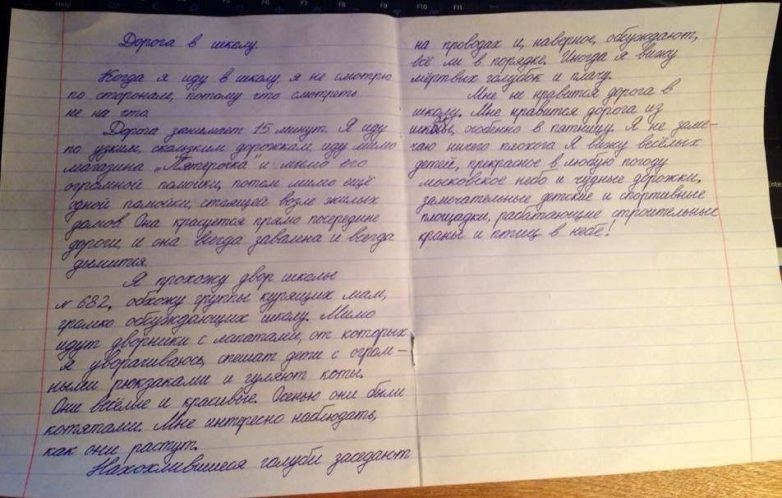 Дорога в школу.
Когда я иду в школу, я не смотрю
по сторонам, потому что смотреть
не на что.
Дорога занимает 15 минут. Я иду
по узким, скользким дорожкам, иду мимо
магазина „Пятерочка" и мимо его
огромной помойки, потом мимо ещё
одной помойки, стоящей возле жилых
домов. Она красуется прямо посередине
дороги и она всегда завалена и всегда
дымится.
Я прохожу двор школы
№ 682, обхожу группы курящих мам,
громко обсуждающих школу. Мимо
идут дворники с лопатами, от которых
я уворачиваюсь, спешат дети с огром-
ными рюкзаками и гуляют коты.
Они весёлые и красивые. Осенью они были
котятами. Мне интересно наблюдать,
как они растут.
Нахохлившиеся голуби заседают
на проводах и, наверное, обсуждают,
всё ли в порядке. Иногда я вижу
мёртвых голубок и плачу.
Мне не нравится дорога в
школу. Мне нравится дорога из
школы, особенно в пятницу. Я не заме-
чаю ничего плохого. Я вижу весёлых
детей, прекрасное в любую погоду
московское небо и чудные дорожки,
замечательные детские и спортивные
площадки, работающие строительных
краны и птиц в небе!